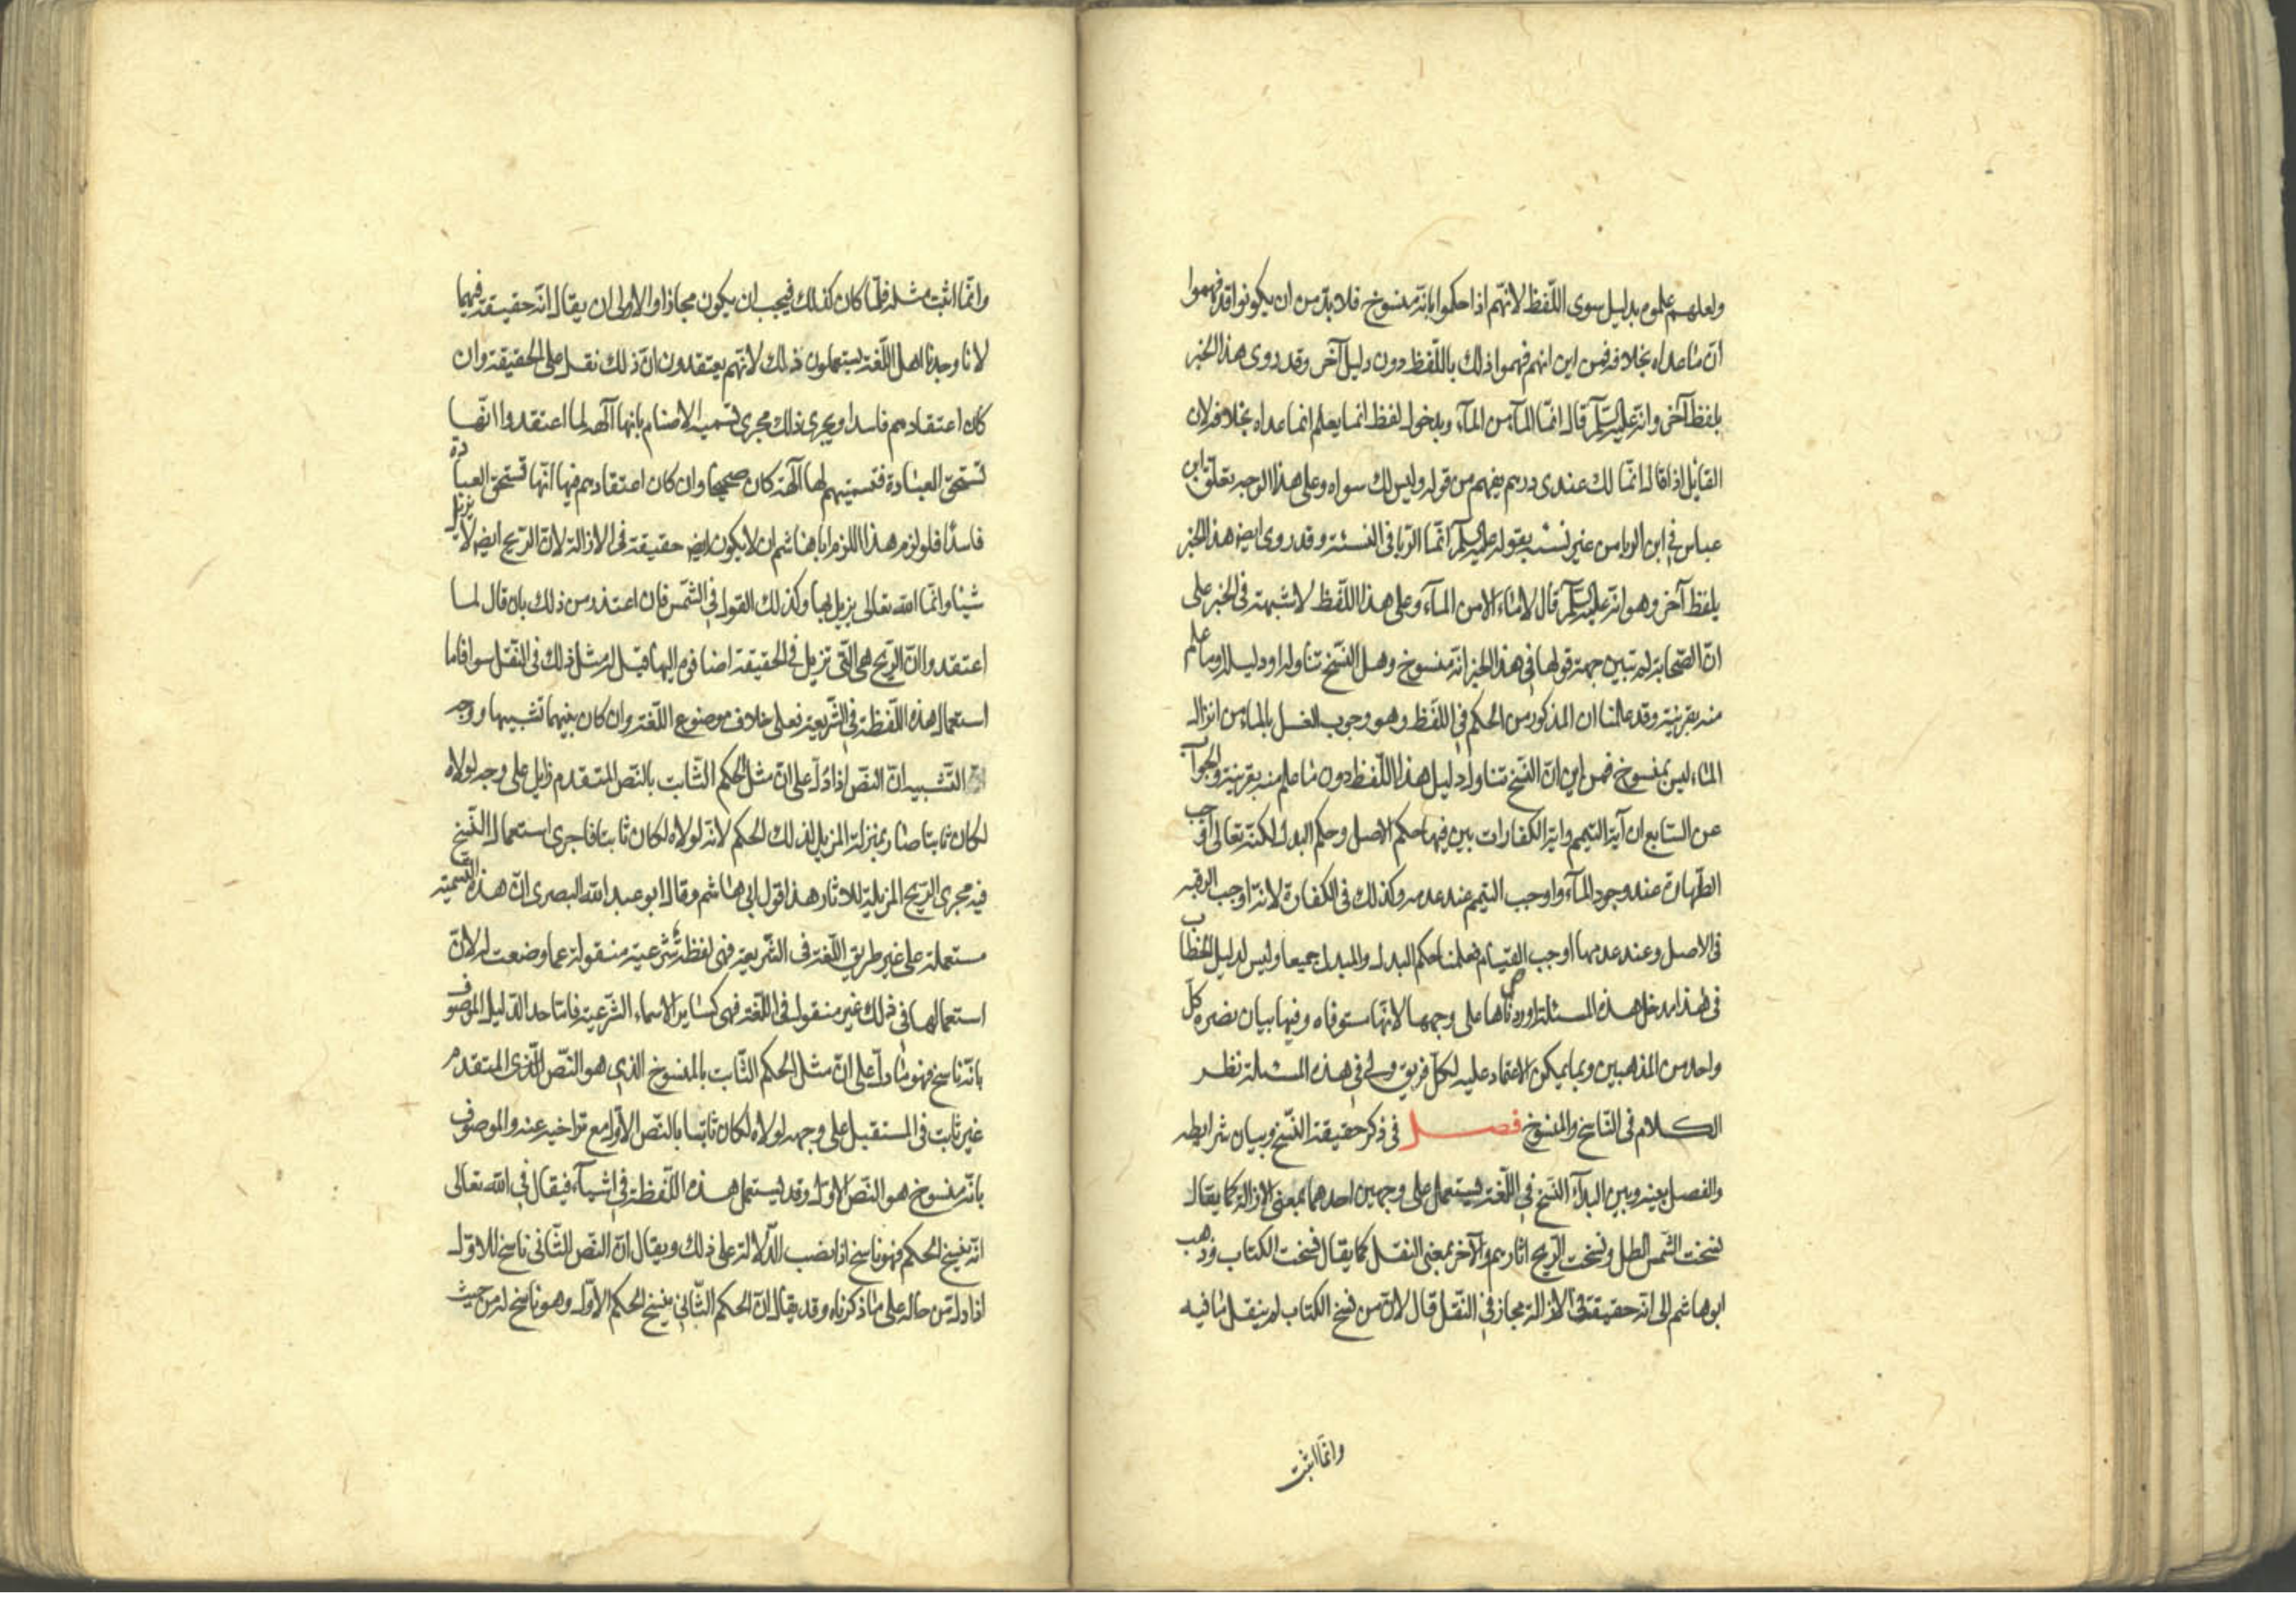 ولعلهم علموه بدليل سوى اللّفظ لانّهم اذا حكموا بانّه منسوخ فلا بدّ من ان يكونوا قد فهموا
انّ ما عداه بخلافه فمن اين انهم فهموا ذلك باللّفظ دون دليل آخر وقد روى هذا الخبر
بلفظ آخر وانّه عليه السلم قال انمّا المآء من المآء وبدخول لفظ انما يعلم انما عداه بخلافه لان
القائل اذا قال انمّا لك عندى درهم يفهم من قوله وليس لك سواه وعلى هذا الوجه تعلّق ابن
عباس فى ابن الربا من غير نسئه بقوله عليه السلم انمّا الرّبا فى النسئه وقد روى ايضا هذا الخبر
بلفظ آخر وهو انّه عليه السلم قال لا ماء الا من المآء وعلى هذا اللّفظ لا شبهة فى الخبر على
انّ الصّحابة لم تبين جهة قولها فى هذا الخبر انّه منسوخ وهل النّسخ تناوله او دليله او ما علم
منه بقرينه وقد علمنا ان المذكور من الحكم فى اللّفظ وهو وجوب الغسل بالماء من انزال
الماء ليس بمنسوخ فمن اين انّ النّسخ تناول دليل هذا اللّفظ دون ما علم منه بقرينه والجواب
عن السّابع ان آية التيمم واية الكفارات بين فيها حكم الاصل وحكم البدل لكنّه تعالى اوجب
الطّهارة عند وجود المآء واوجب التيمم عند عدمه وكذلك فى الكفارة لانّه اوجب الرقبه
فى الاصل وعند عدمها اوجب الصيام فعلمنا حكم البدل والمبدل جميعا وليس لدليل الخطاب
فى هذا مدخل هذه المسئلة اوردناها على وجهها لانّها مستوفاه وفيها بيان نصره كلّ
واحد من المذهبين وما يمكن الاعتماد عليه لكلّ فريق ولى فى هذه المسئلة نظر
الكلام فى النّاسخ والمنسوخ فصل فى ذكر حقيقة النّسخ وبيان شرايطه
والفصل بينه وبين البدآء النّسخ فى اللّغة يستعمل على وجهين احدهما بمعنى الازالة كما يقال
نسخت الشّمس الظل ونسخت الرّيح اثارهم والآخر بمعنى النقل كما يقال نسخت الكتاب وذهب
ابو هاشم الى انّه حقيقة فى الازالة مجاز فى النّقل قال لانّ من نسخ الكتاب لم ينقل ما فيه
وانمّا اثبت
وانمّا اثبت مثله فلمّا كان كذلك فيجب ان يكون مجازا والاولى ان يقال انّه حقيقة فيهما
لانا وجدنا اهل اللّغة يستعملون ذلك لانّهم يعتقدون انّ ذلك نقل على الحقيقة وان
كان اعتقادهم فاسدا ويجرى ذلك مجرى تسميه الاصنام بانها آلهه لما اعتقدوا انّها
تستحق العبادة فتسميتهم لها آلهة كان صحيحا وان كان اعتقادهم فيها انّها تستحق العبادة
فاسدًا فلو لزم هذا للزم ابا هاشم ان لا يكون ايضا حقيقة فى الازالة لانّ الرّيح ايضا لا يزيل
شيئا وانمّا الله تعالى يزيل بها وكذلك القول فى الشّمس فان اعتذر من ذلك بان قال لما
اعتقدوا انّ الرّيح هى التّى تزيل فى الحقيقة اضافوه اليها قيل له مثل ذلك فى النّقل سوا فاما
استعمال هذه اللّفظة فى الشّريعة فعلى خلاف موضوع اللّغة وان كان بينهما تشبيها ووجه
التّشبيه انّ النصّ اذا دلّ على انّ مثل الحكم الثّابت بالنّص المتقدم زايل على وجه لولاه
لكان ثابتا صار بمنزلة المزيل لذلك الحكم لانّه لولاه لكان ثابتا فاجرى استعمال النّسخ
فيه مجرى الرّيح المزيلة للاثار هذا قول ابى هاشم وقال ابو عبد الله البصرى انّ هذه التسمية
مستعملة على غير طريق اللّغة فى الشّريعة فهى لفظة شرعية منقولة عما وضعت له لانّ
استعمالها فى ذلك غير منقول فى اللّغة فهى كساير الاسماء الشّرعية فامّا حد الدّليل الموصوف
بانّه ناسخ فهو ما دلّ على انّ مثل الحكم الثّابت بالمنسوخ الذى هو النّص الّذى المتقدم
غير ثابت فى المستقبل على وجه لولاه لكان ثابتا بالنّص الاوّل مع تراخيه عنه والموصوف
بانّه منسوخ هو النّص الاوّل وقد يستعمل هذه اللّفظة فى اشيآء فيقال فى الله تعالى
انّه ينسخ الحكم فهو ناسخ اذا نصب الدّلالة على ذلك ويقال انّ النّص الثّانى ناسخ للاوّل
اذا دل من حاله على ما ذكرناه وقد يقال انّ الحكم الثّانى ينسخ الحكم الاوّل وهو ناسخ له من حيث